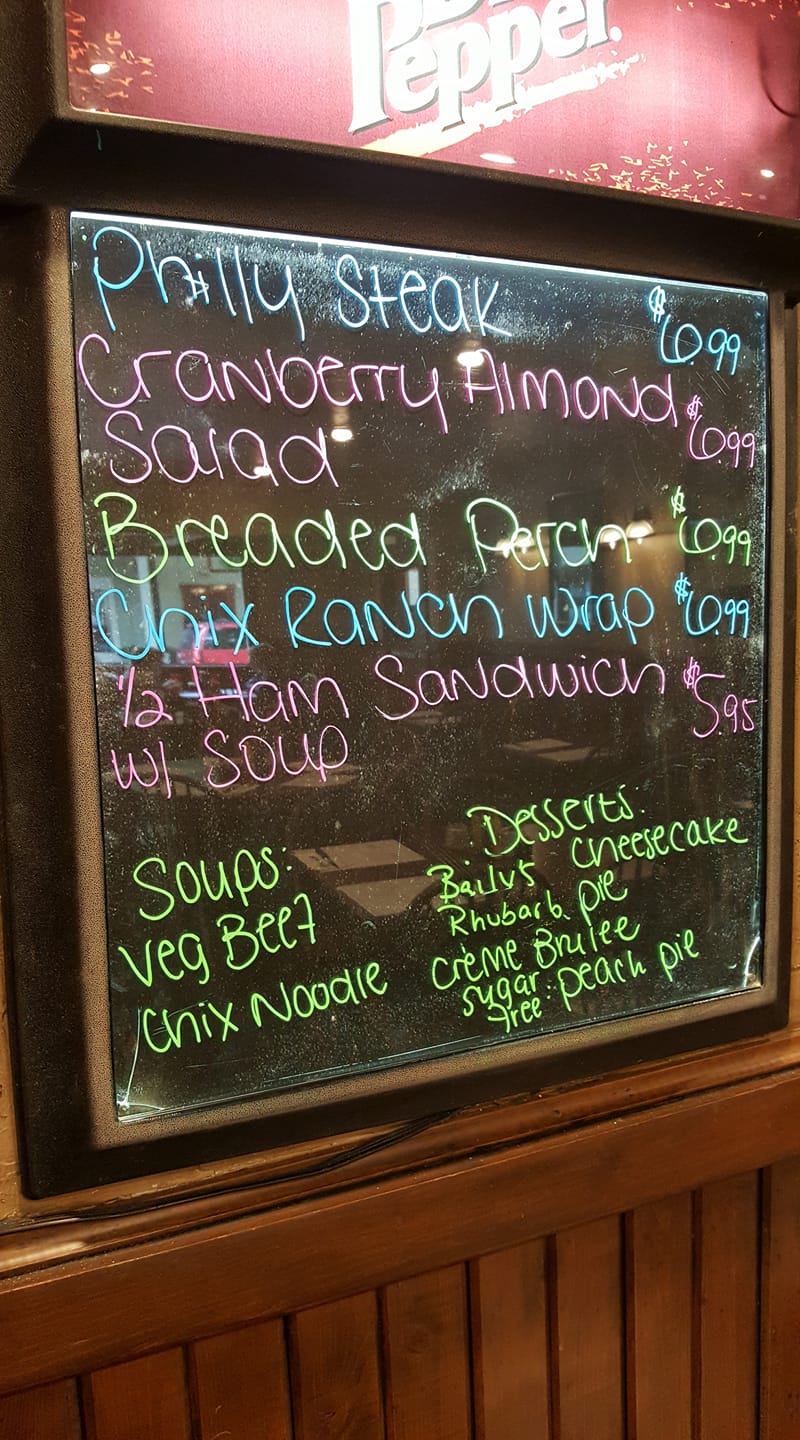 Dr Pepper.
Philly Steak $6.99
Cranberry Almond
Salad $6.99
Breaded Perch $6.99
Chix Ranch Wrap $6.99
1/2 Ham Sandwich $5.95
w/ Soup
Soups:
Veg Beef
Chix Noodle
Desserts:
Baily's Cheesecake
Rhubarb pie
Crème Brulee
sugar free: peach pie